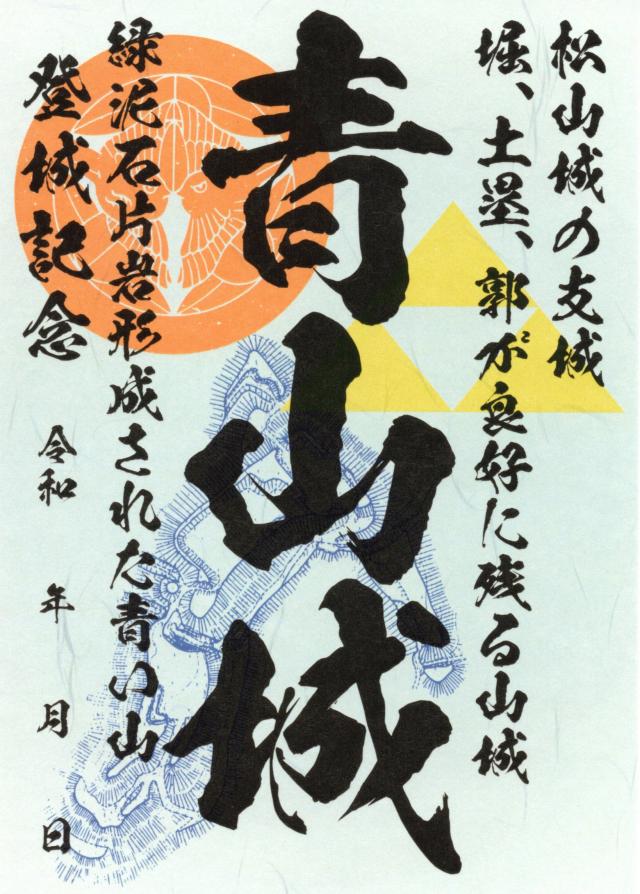 松山城の支城
堀、土塁、郭が良好に残る山城
青山城
緑泥石片岩形成された青い山
登城記念
令和 年 月 日